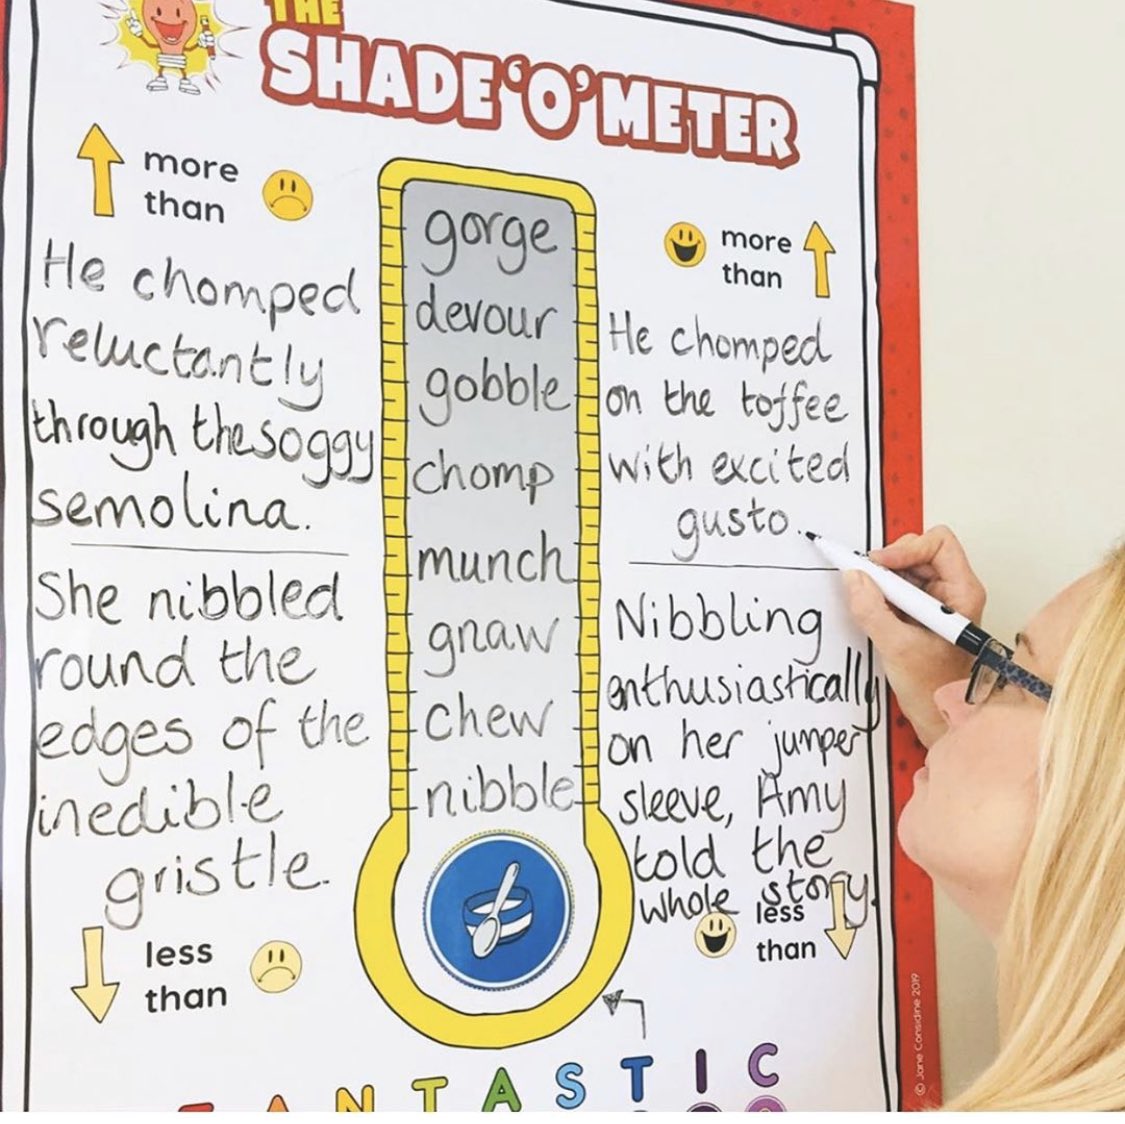 THE
SHADE'O'METER
more
than
He chomped
reluctantly
through the soggy
semolina.
She nibbled
round the
edges of the
inedible
gristle.
less
than
gorge
devour
gobble
chomp
munch
gnaw
chew
nibble
more
than
He chomped
on the toffee
with excited
gusto.
Nibbling
enthusiastically
on her jumper
sleeve, Amy
told the
whole story.
less
than
© Jane Considine 2019
FANTASTIC